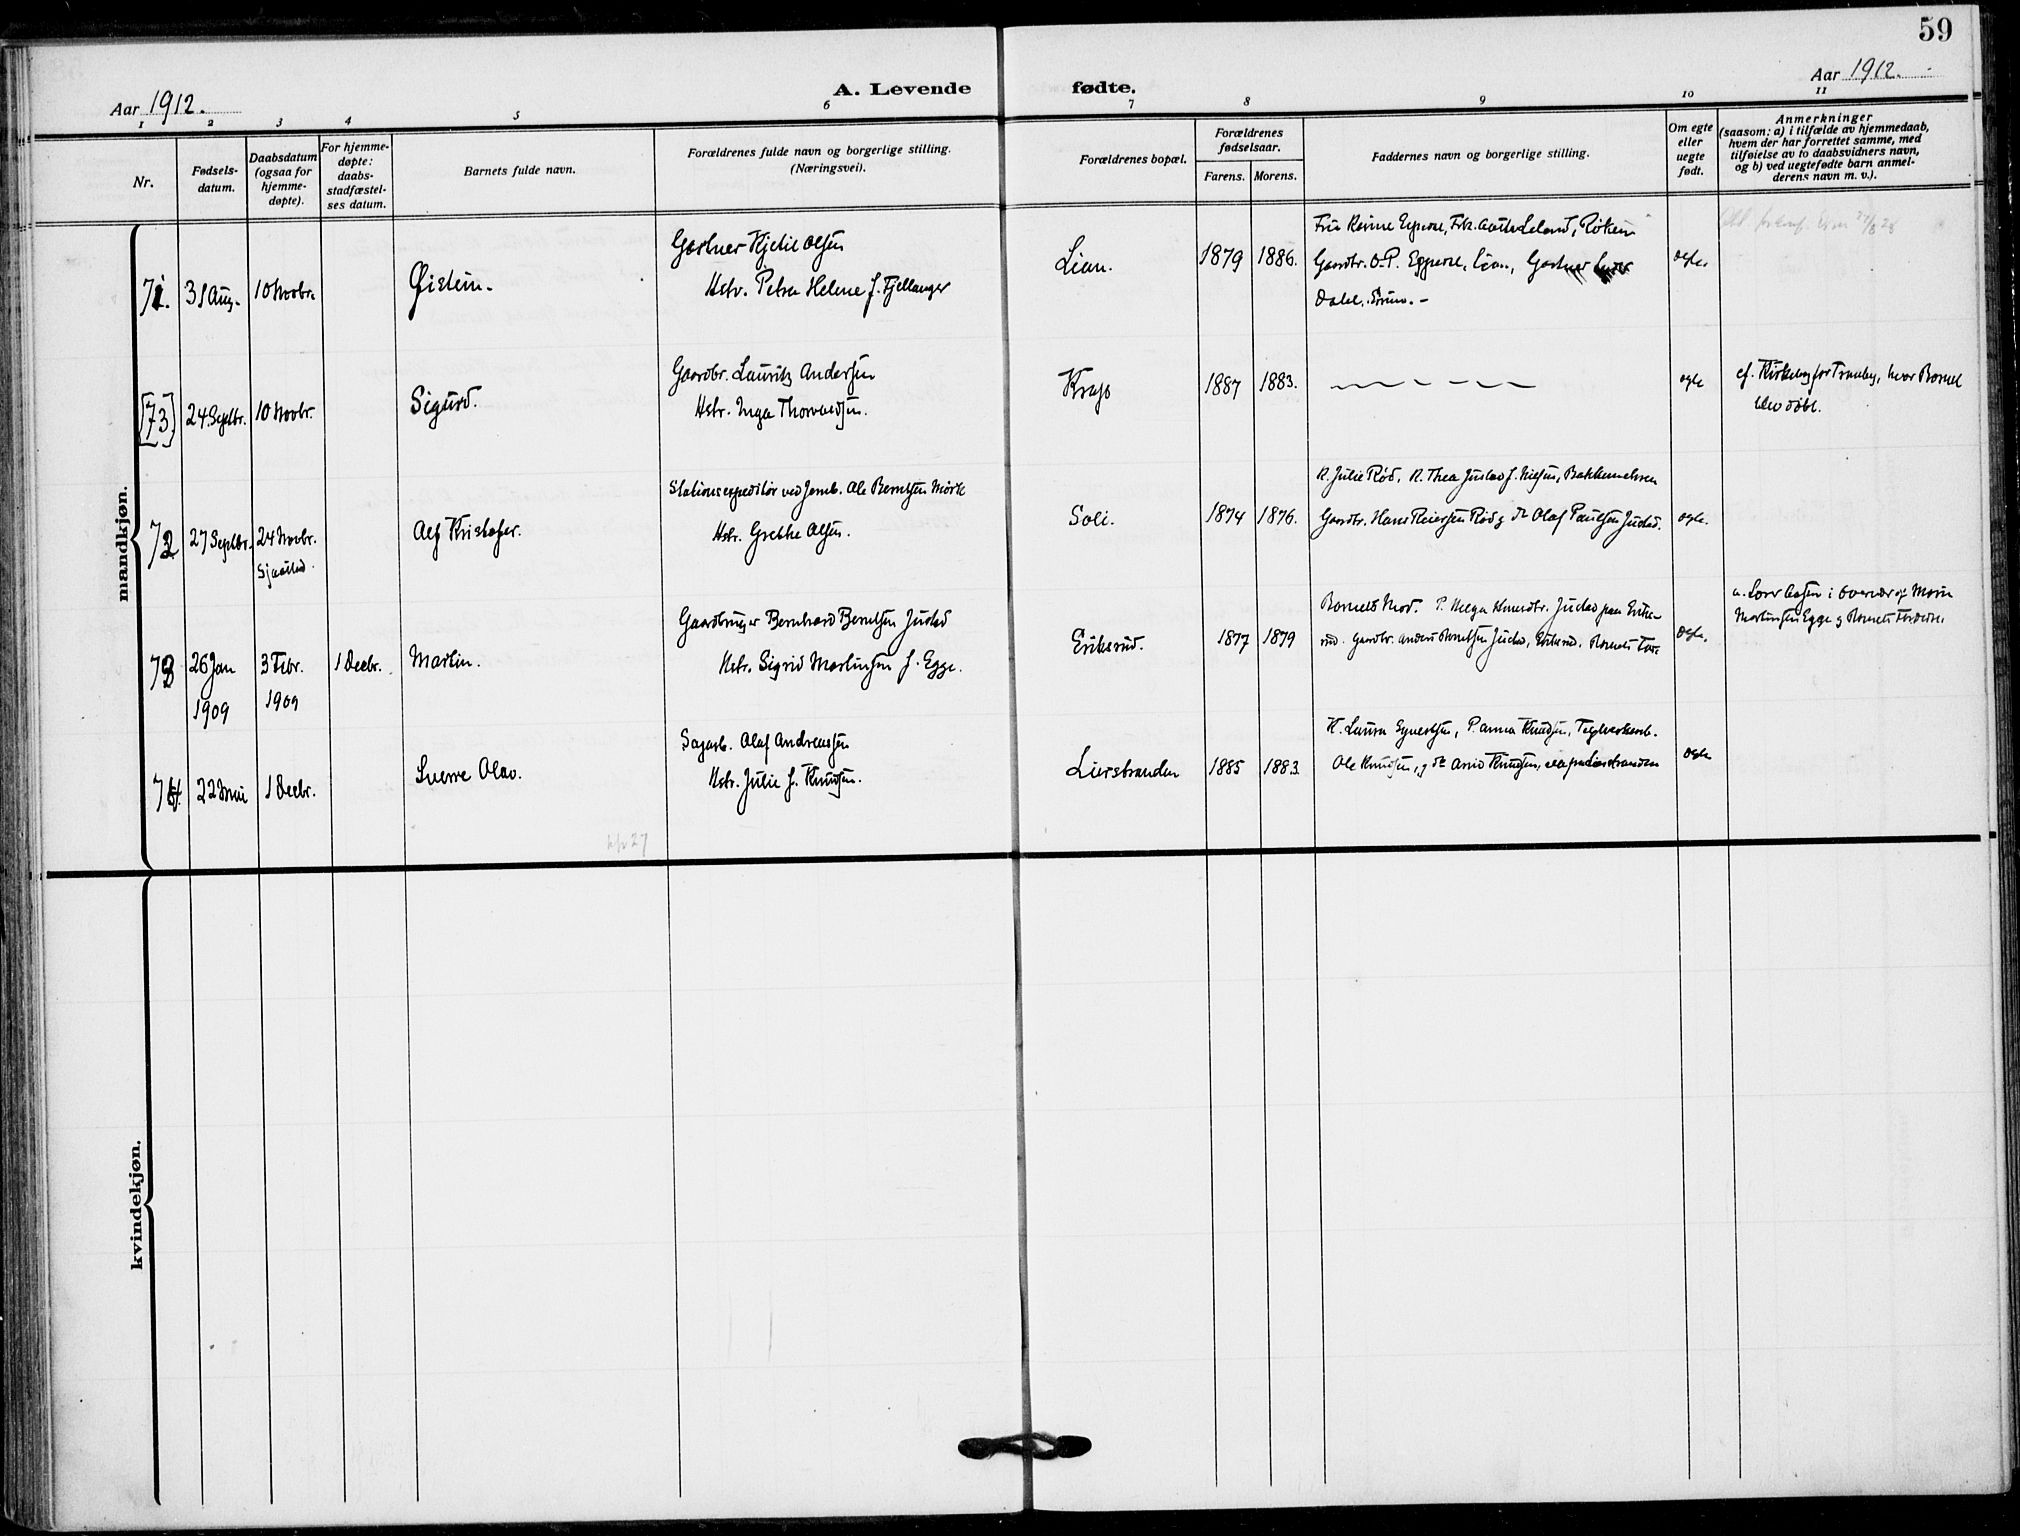 59
Aar 1912.
A. Levende fødte.
Aar 1912.
1 2 3 4 5 6 7 8 9 10 11
Nr.
Fødsels-
datum.
Daabsdatum
(ogsaa for
hjemme-
døpte).
For hjemme-
døpte:
daabs-
stadfæstel-
ses datum.
Barnets fulde navn.
Forældrenes fulde navn og borgerlige stilling.
(Næringsvei).
Forældrenes bopæl.
Forældrenes
fødselsaar.
Farens. Morens.
Faddernes navn og borgerlige stilling.
Om egte
eller
uegte
født.
Anmerkninger
(saasom: a) i tilfælde av hjemmedaab,
hvem der har forrettet samme, med
tilføielse av to daabsvidners navn,
og b) ved uegtefødte barn anmel-
derens navn m. v.).
mandkjøn.
71. 31 Aug. 10 Novbr. Øistein.
Gartner Kjetil Olsen
Hstr. Petra Helene f. Fjellanger
Lian. 1879 1886.
Gaardbr. O. P. Eggevol, Lian, Gartner
Dahl,
egte.
[73] 24 Septbr. 10 Novbr. Sigurd.
Gaardbr. Lauritz Andersen
Hstr. Inga Thorvaldsen.
1887 1883.
egte
cf. Kirkebog for Tranby, hvor Barnet
blev døbt.
72 27 Septbr. 24 Novbr.
Sjaastad.
Alf Kristofer.
Stationsexpeditør ved Jernb. Ole Berntsen Mørk
Hstr. Grethe Olsen.
Soli. 1874 1876.
K. Julie Rød, K. Thea Justad f. Nielsen,
Gaardbr. Hans Reiersen Rød og Olaf Paulsen Justad.
egte.
73 26 Jan
1909
3 Febr.
1909
1 Decbr.
Martin.
Gaardbruger Bernhard Berntsen Justad
Hstr. Sigrid Martinsen f. Egge.
Eriksrud. 1877 1879
Barnets Mod. P. Helga Justad paa Erik-
rud. Gaardbr. Anders Berntsen Justad, Eriksrud. Barnets Far.
egte.
i Overvær af Maria
Martinsen Egge og Barnets Forældre.
74. 22 Mai 1 Decbr. Sverre Olav.
Sagarb. Olaf Andreassen
Hstr. Julie f. Knudsen.
Lierstranden 1885 1883.
K. Laura Syvertsen, P. Anna Knudsen, Teglverksarb.
Ole Knudsen, og Knudsen, alle paa Lierstranden
egte
kvindekjøn.